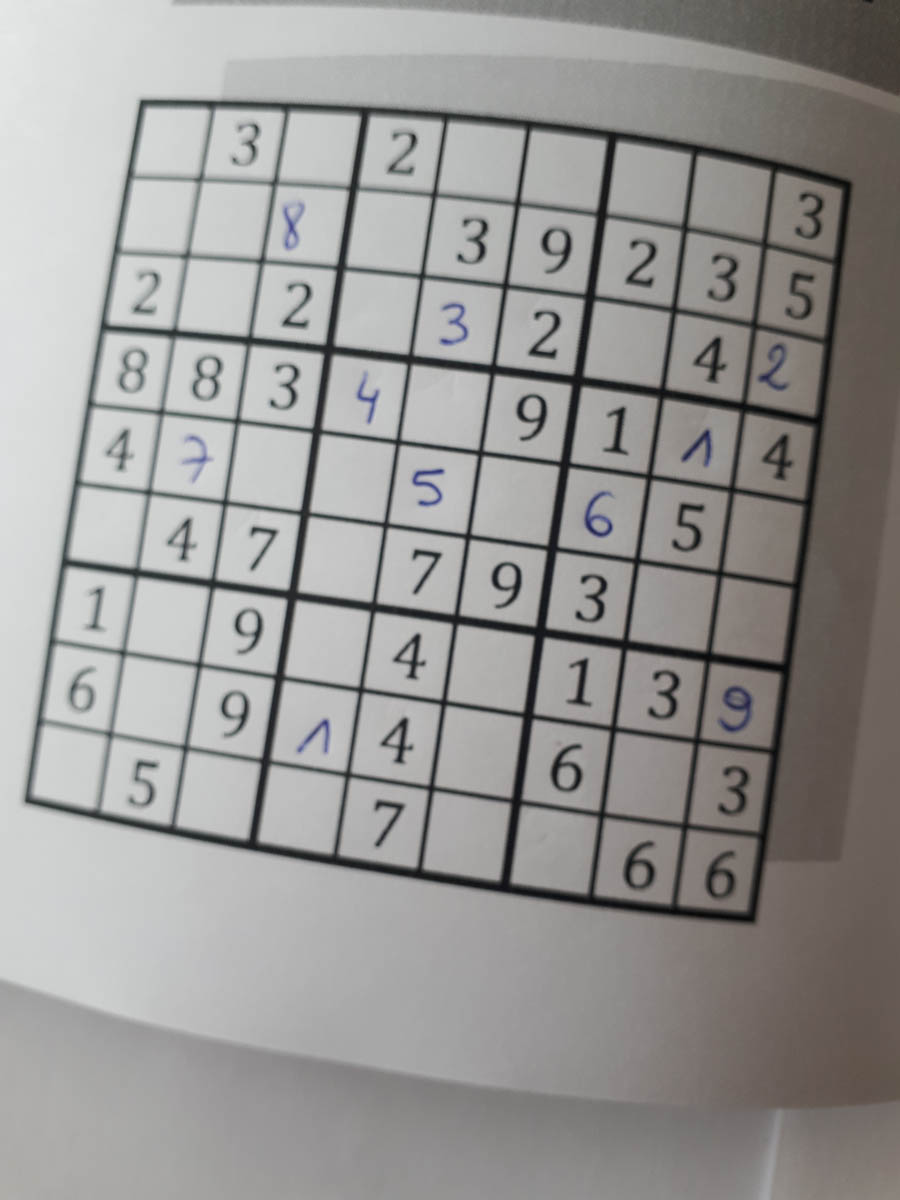 3 2 3
8 3 9 2 3 5
2 2 3 2 4 2
8 8 3 4 9 1 1 4
4 7 5 6 5
4 7 7 9 3
1 9 4 1 3 9
6 9 1 4 6 3
5 7 6 6